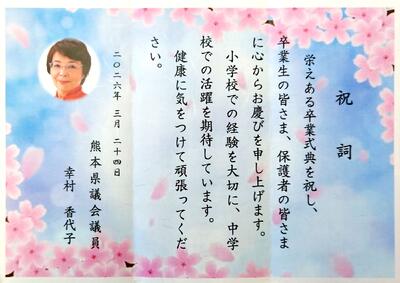 祝詞
栄えある卒業式典を祝し、
卒業生の皆さま、保護者の皆さま
に心からお慶びを申し上げます。
小学校での経験を大切に、中学
校での活躍を期待しています。
健康に気をつけて頑張ってくだ
さい。
二〇二六年 三月 二十四日
熊本県議会議員
幸村 香代子